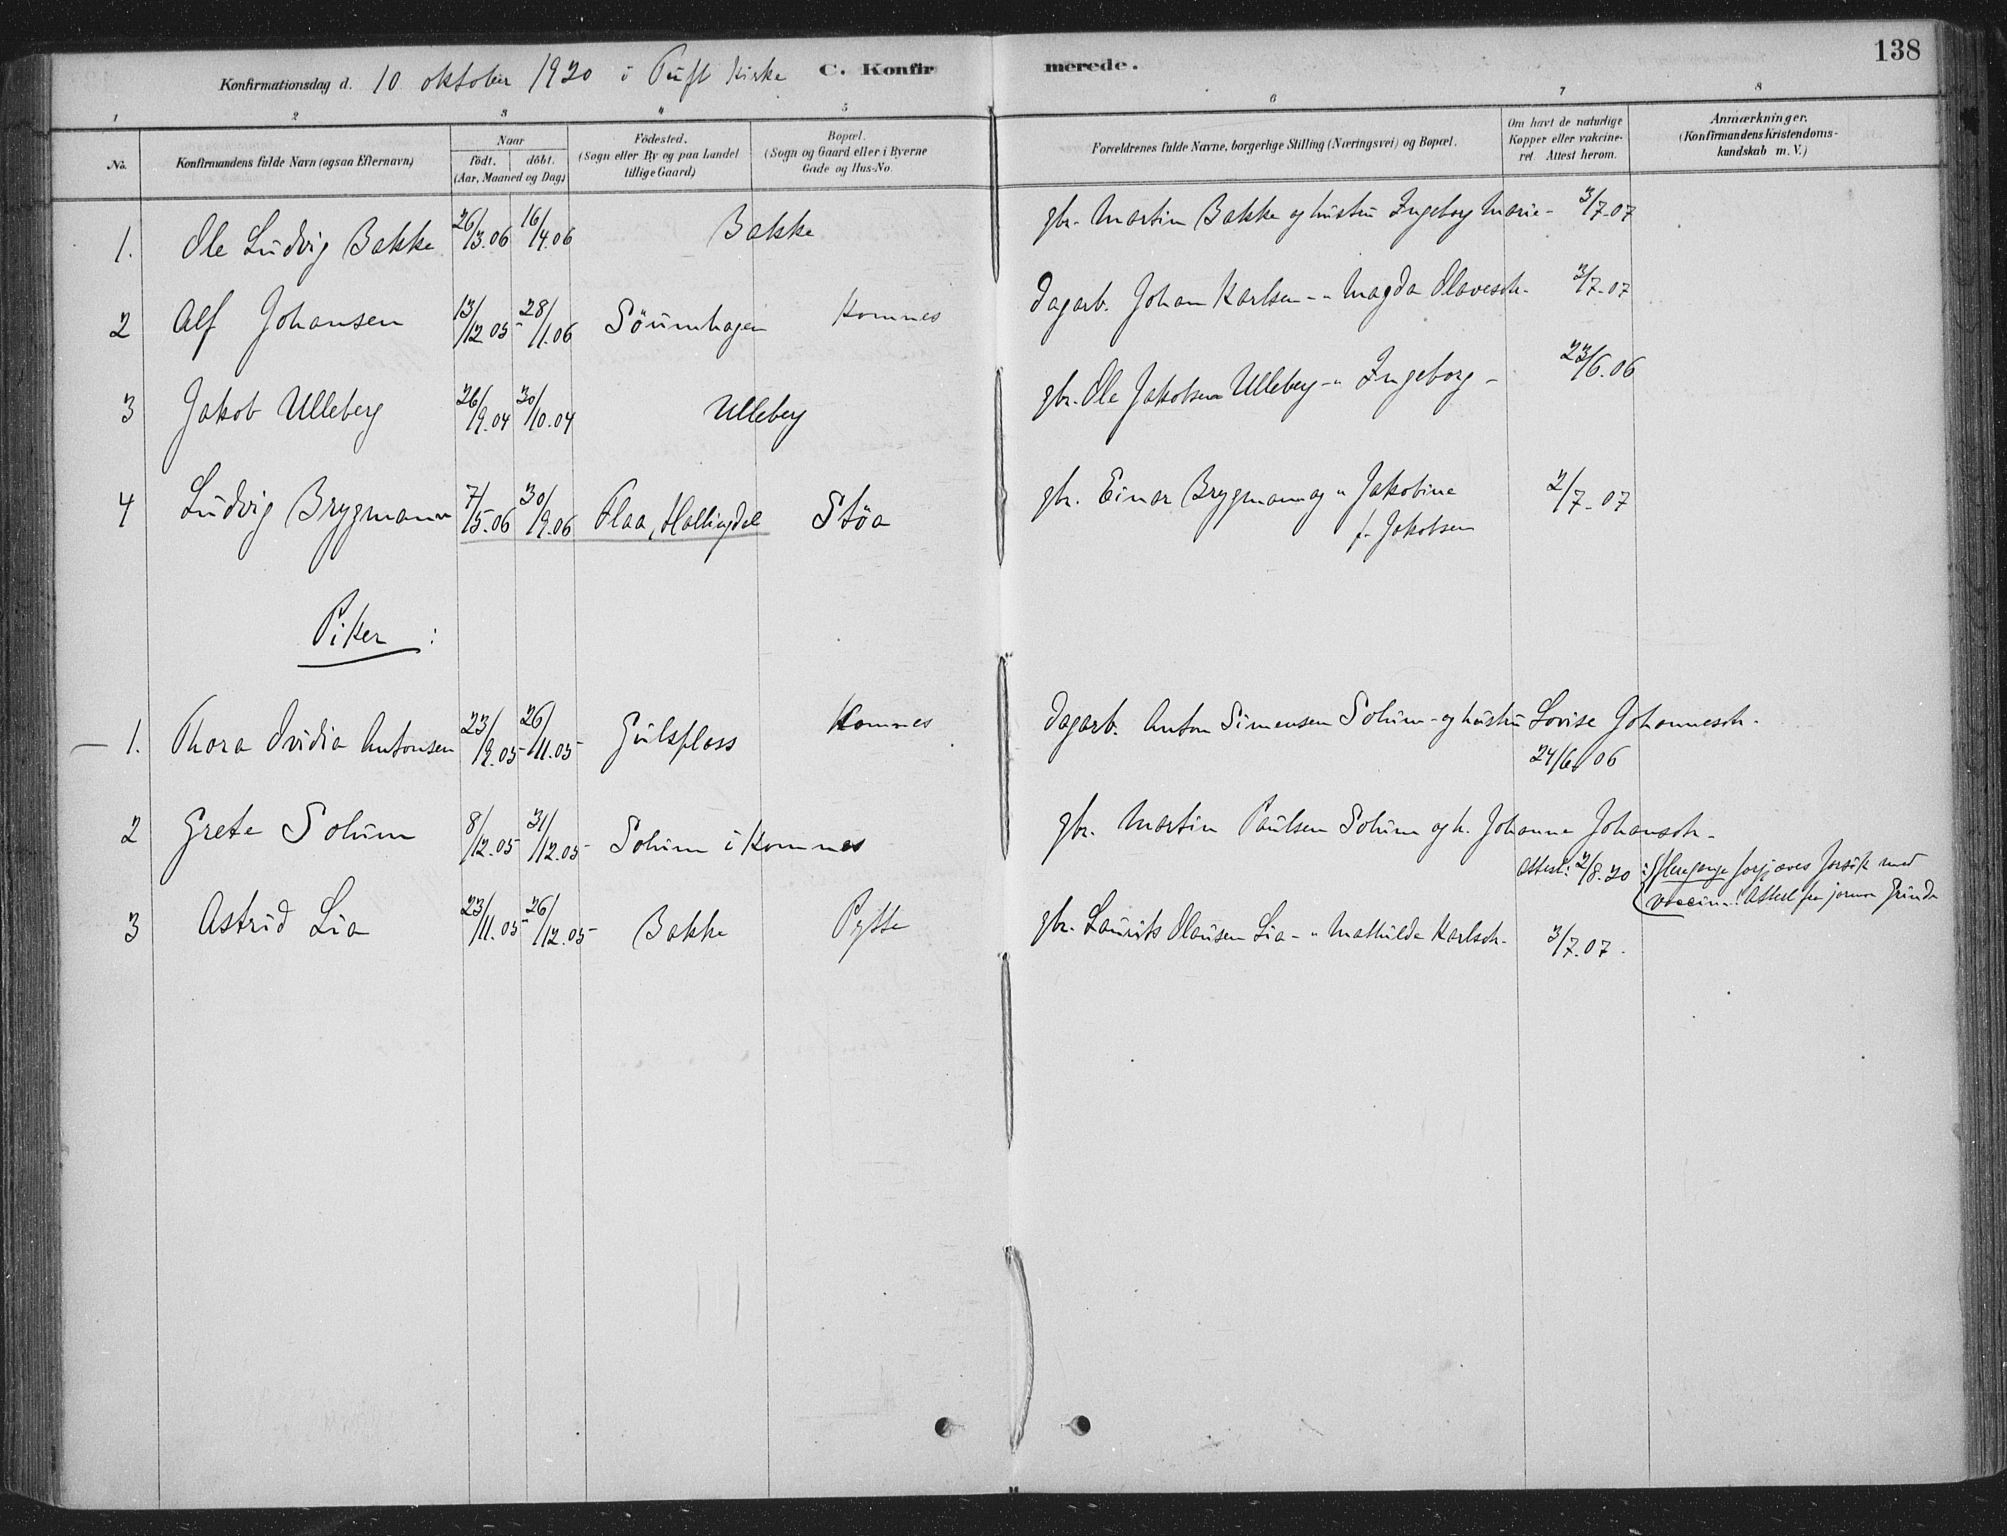 138
Konfirmationsdag d. 10 oktober 1920 i Tuft Kirke C. Konfirmerede.
1 2 3 4 5 6 7 8
No. Konfirmandens fulde Navn (ogsaa Efternavn) Naar födt. döbt. (Aar, Maaned og Dag) Födested. (Sogn eller By og paa Landet tillige Gaard) Bopæl. (Sogn og Gaard eller i Byerne Gade og Hus-No. Forældrenes fulde Navne, borgerlige Stilling (Næringsvei) og Bopæl. Om havt de naturlige Kopper eller vakcineret. Attest herom. Anmærkninger. (Konfirmandens Kristendomskundskab m. V.)
1. Ole Ludvig Bakke 26/3.06 16/4.06 Bakke gbr. Martin Bakke og hustru Ingeborg Marie - 3/7.07
2 Alf Johansen 13/12.05 28/1.06 Söumhagen Komnes Dagarb. Johan Karlsen - " Magda Olavesdtr. 3/7.07
3 Jakob Ulleberg 26/9.04 30/10.04 Ulleberg gbr. Ole Jakobsen Ulleberg - " Ingeborg - 23/6.06
4 Ludvig Brygmann 7/5.06 30/9.06 Flaa, Hallingdal Stöa gbr. Einar Brygmann og " Jakobine 2/7.07
f. Jakobsen
Piker :
1. Thora Ovidia Antonsen 23/9.05 26/11.05 Gulsplass Komnes Dagarb. Anton Simensen Solum - og hustru Lovise Johannesdtr.
24/6.06
2 Grete Solum 8/12.05 31/12.05 Solum i Komnes gbr. Martin Paulsen Solum og h. Johanne Johansdtr.
Attest: 2/8.20 : flere gange forgjæves forsök med
vaccin. Attest fra jormor
3 Astrid Lia 23/11.05 26/12.05 Bakke Pytte gbr. Laurits Olausen Lia - " Mathilde Karlsdtr. 3/7.07.